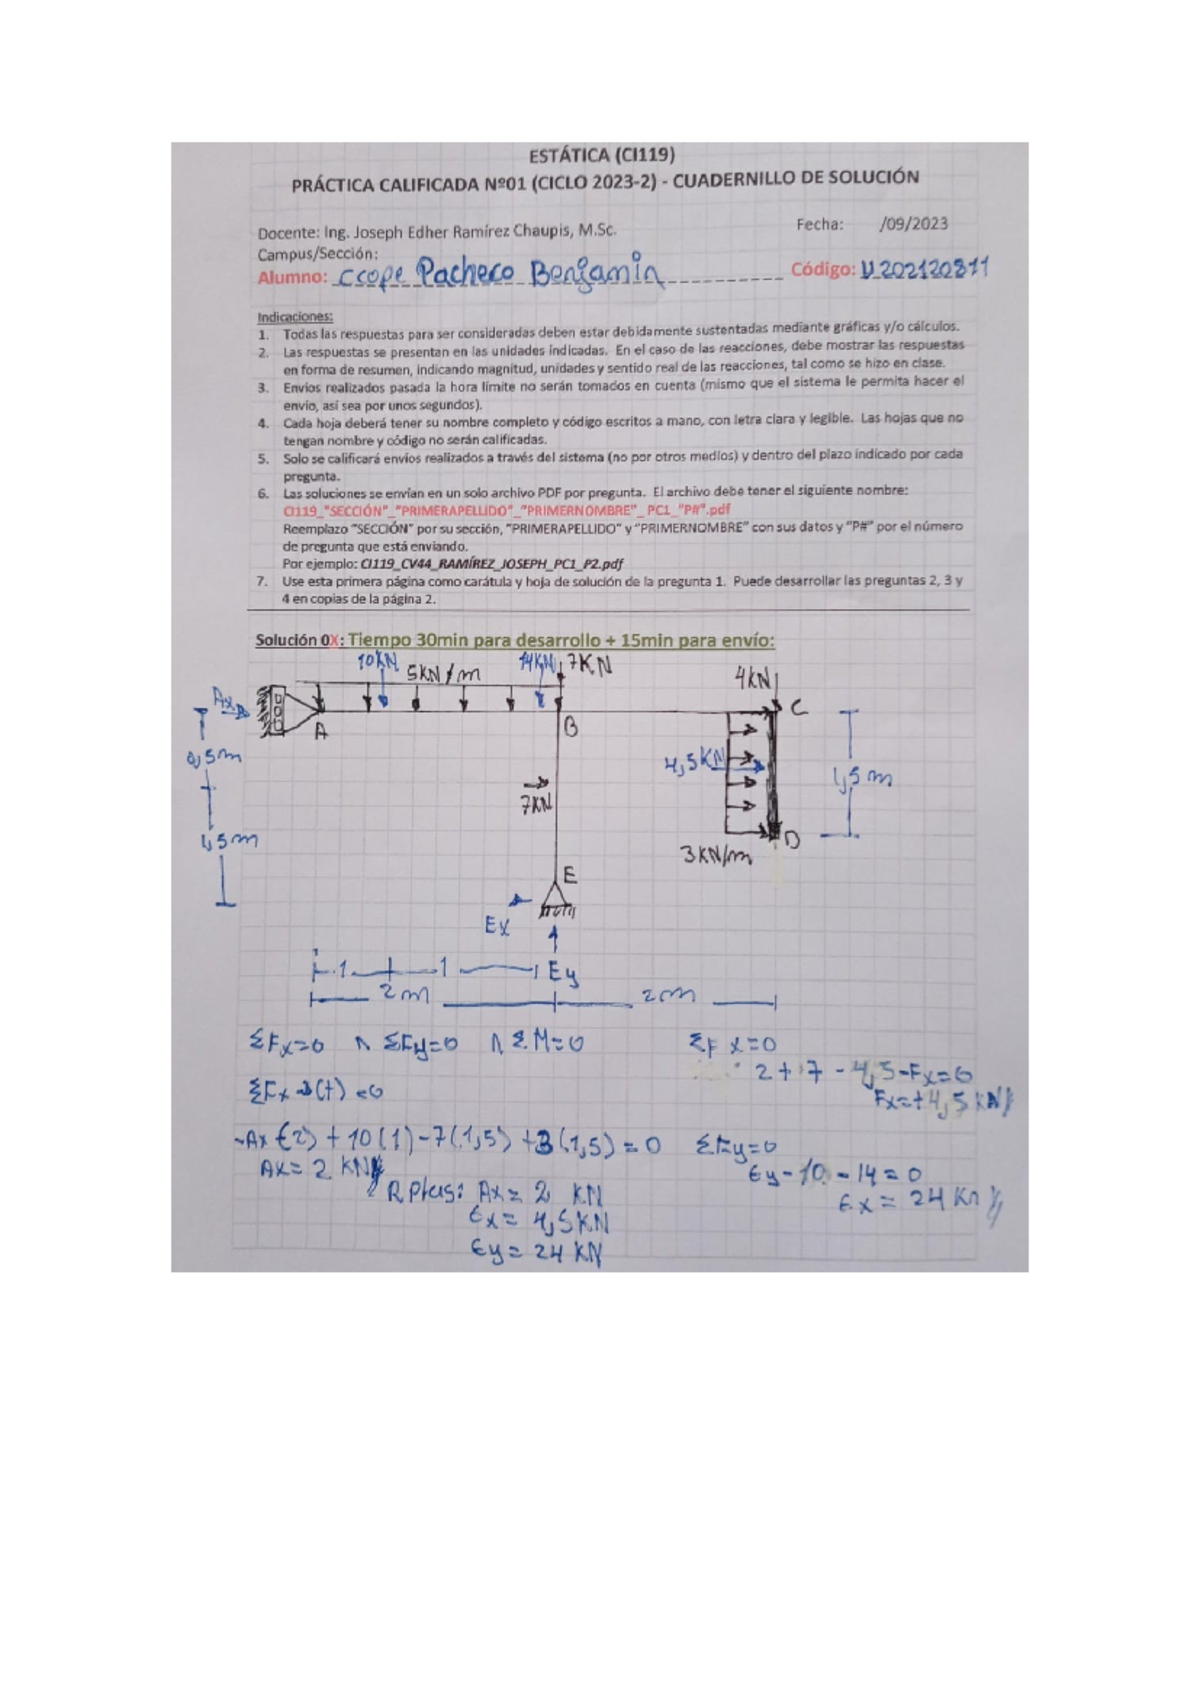 ESTÁTICA (CI119)
PRÁCTICA CALIFICADA Nº01 (CICLO 2023-2) - CUADERNILLO DE SOLUCIÓN
Docente: Ing. Joseph Edher Ramírez Chaupis, M.Sc.
Fecha: /09/2023
Campus/Sección:
Alumno: Ccope Pacheco Benjamin
Código: U202120811
Indicaciones:
1. Todas las respuestas para ser consideradas deben estar debidamente sustentadas mediante gráficas y/o cálculos.
2. Las respuestas se presentan en las unidades indicadas. En el caso de las reacciones, debe mostrar las respuestas
en forma de resumen, indicando magnitud, unidades y sentido real de las reacciones, tal como se hizo en clase.
3. Envíos realizados pasada la hora límite no serán tomados en cuenta (mismo que el sistema le permita hacer el
envío, así sea por unos segundos).
4. Cada hoja deberá tener su nombre completo y código escritos a mano, con letra clara y legible. Las hojas que no
tengan nombre y código no serán calificadas.
5. Solo se calificará envíos realizados a través del sistema (no por otros medios) y dentro del plazo indicado por cada
pregunta.
6. Las soluciones se envían en un solo archivo PDF por pregunta. El archivo debe tener el siguiente nombre:
CI119_"SECCIÓN"_"PRIMERAPELLIDO"_"PRIMERNOMBRE"_PC1_"P#".pdf
Reemplazo "SECCIÓN" por su sección, "PRIMERAPELLIDO" y "PRIMERNOMBRE" con sus datos y "P#" por el número
de pregunta que está enviando.
Por ejemplo: CI119_CV44_RAMÍREZ_JOSEPH_PC1_P2.pdf
7. Use esta primera página como carátula y hoja de solución de la pregunta 1. Puede desarrollar las preguntas 2, 3 y
4 en copias de la página 2.
Solución 0X: Tiempo 30min para desarrollo + 15min para envío:
10KN
5KN/m
14KN
7KN
4KN
Ax
A
B
C
0,5m
4,5KN
1,5m
7KN
1,5m
D
3KN/m
E
Ex
1
1
Ey
2m
2m
ΣFx=0 ∧ ΣFy=0 ∧ ΣM=0
ΣFx=0
2+7-4,5-Fx=0
ΣFx→(+)=0
Fx=+4,5KN
-Ax(2)+10(1)-7(1,5)+3(1,5)=0
ΣFy=0
Ax=2KN
Ey-10-14=0
Rptas: Ax=2 KN
Ex=24 KN
Ex=4,5KN
Ey=24 KN